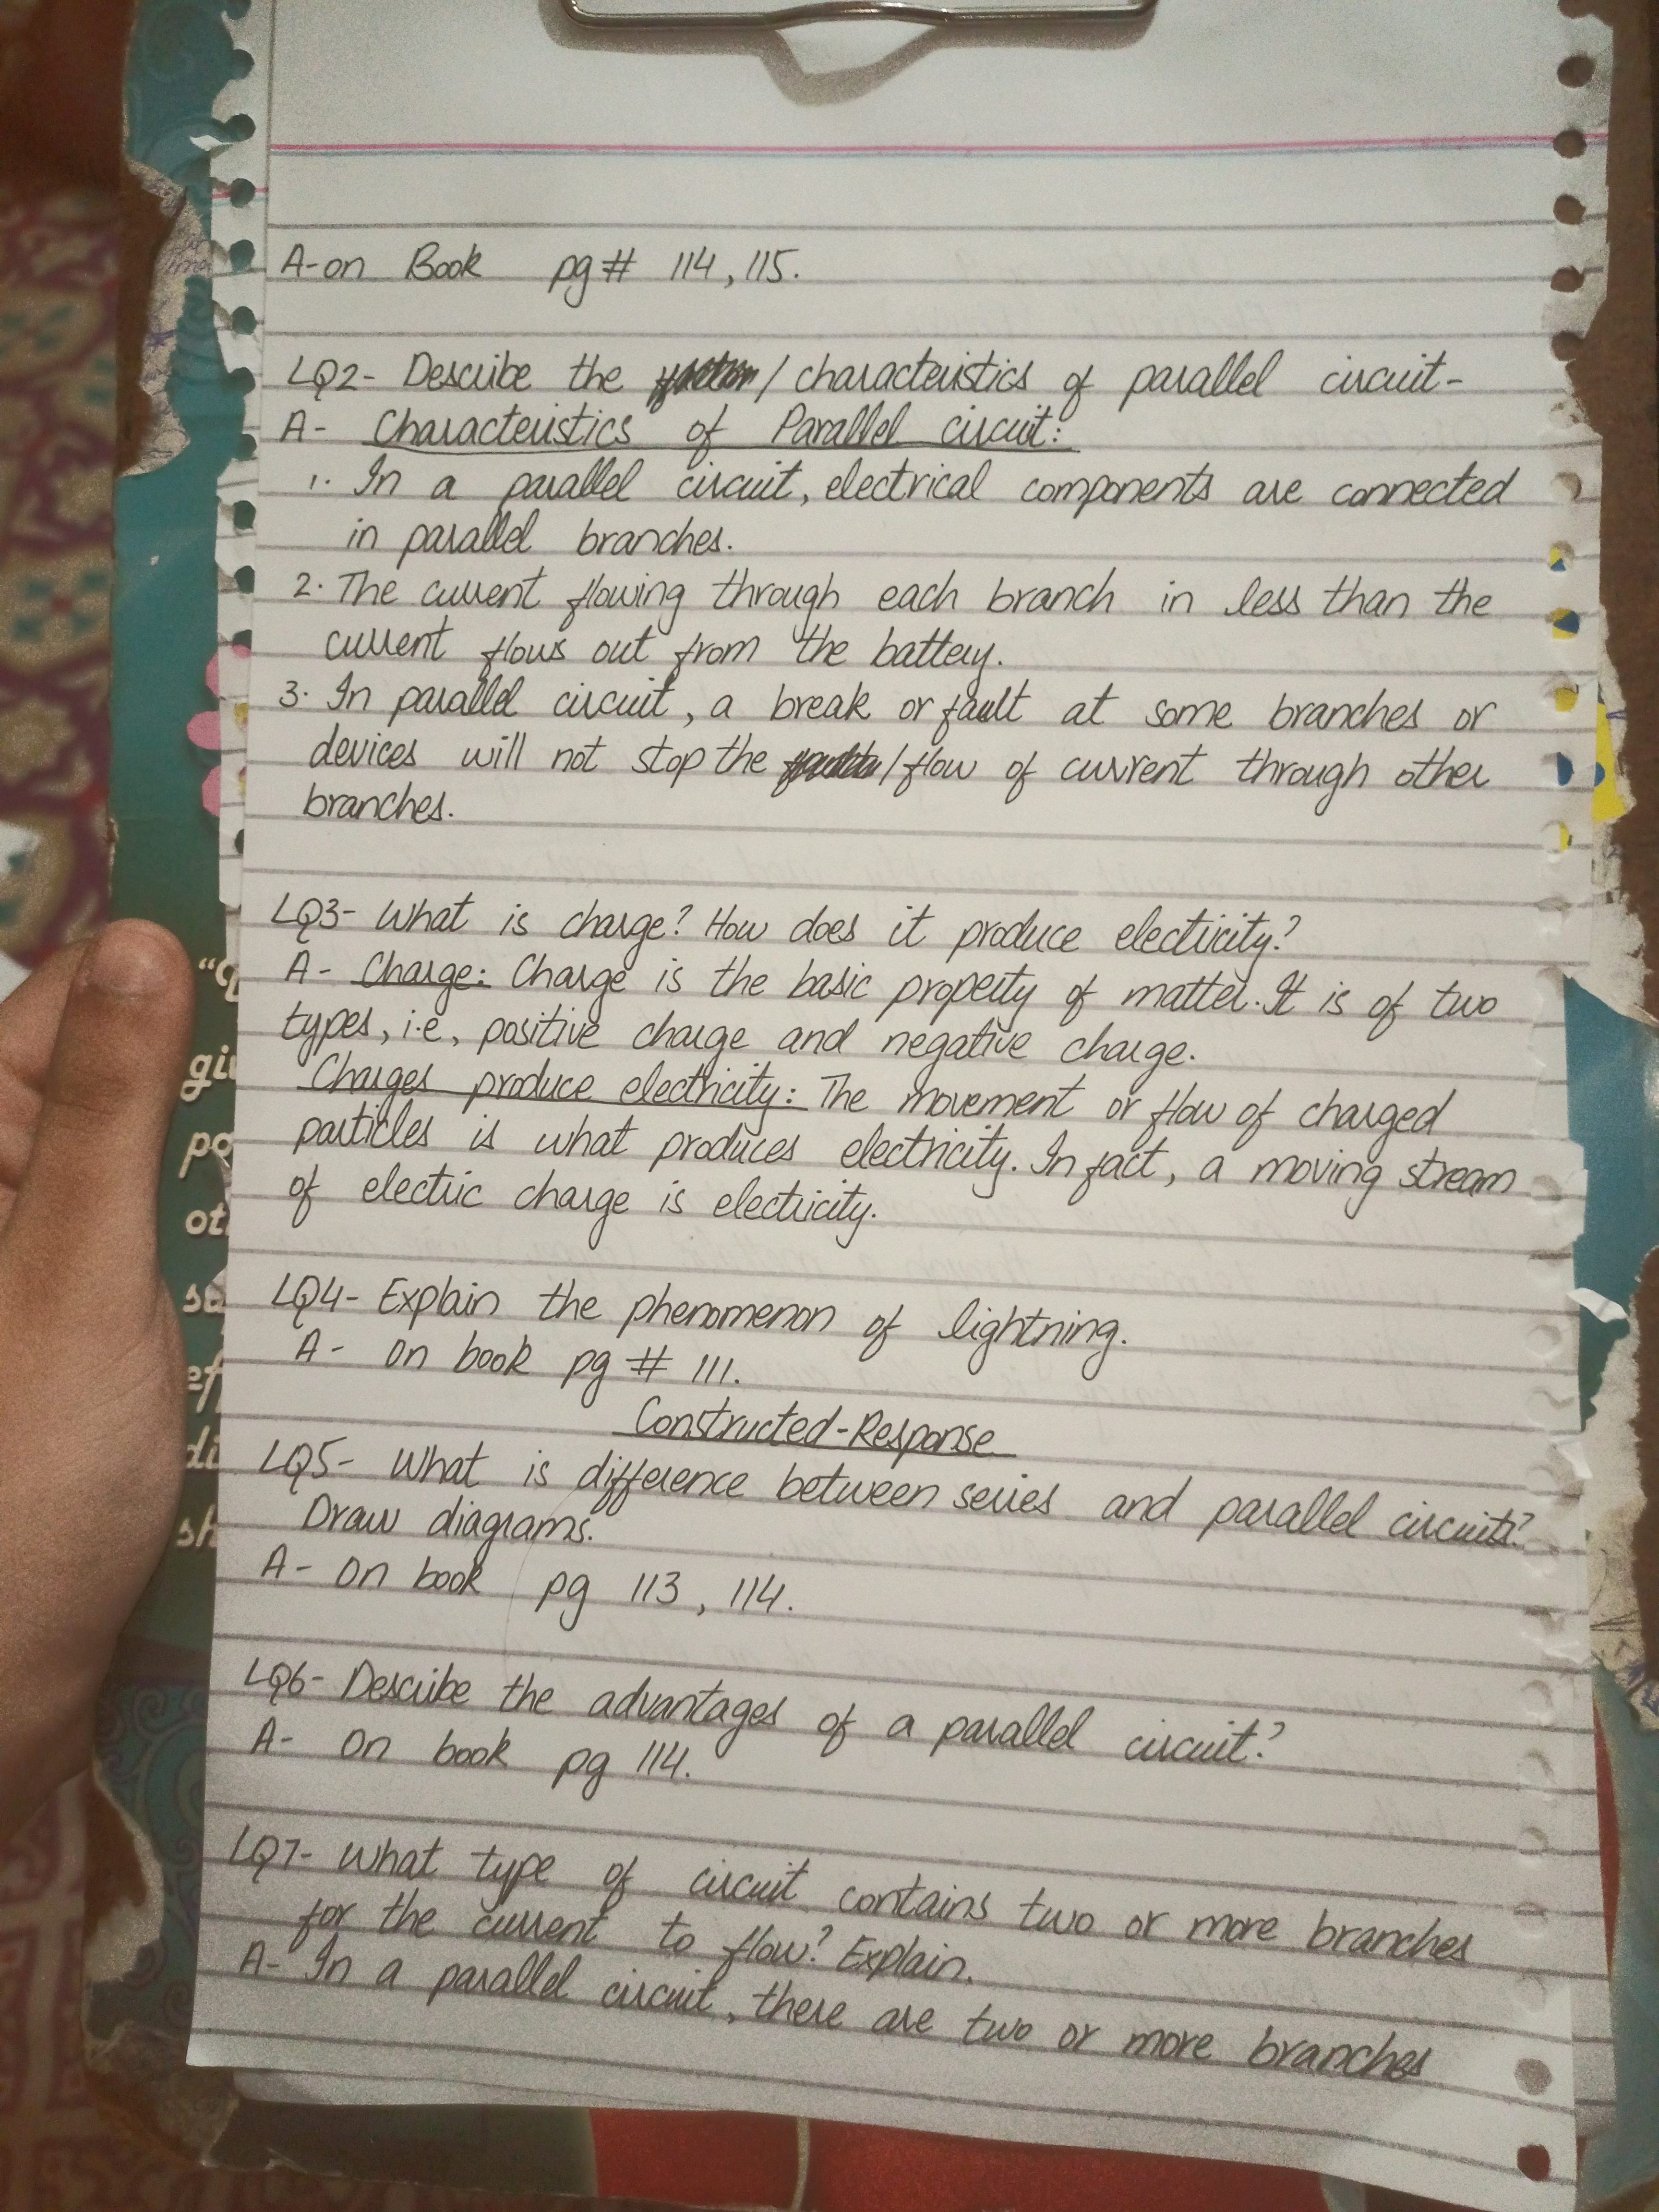 A-on Book pg# 114, 115.
LQ2- Describe the / characteristics of parallel circuit-
A- Characteristics of Parallel circuit:
1. In a parallel circuit, electrical components are connected
in parallel branches.
2. The current flowing through each branch in less than the
current flows out from the battery.
3. In parallel circuit, a break or fault at some branches or
devices will not stop the / flow of current through other
branches.
LQ3- What is charge? How does it produce electricity?
A- Charge: Charge is the basic property of matter. It is of two
types, i.e, positive charge and negative charge.
Charges produce electricity: The movement or flow of charged
particles is what produces electricity. In fact, a moving stream
of electric charge is electricity.
LQ4- Explain the phenomenon of lightning.
A- On book pg # 111.
Constructed-Response
LQ5- What is difference between series and parallel circuits?
Draw diagrams.
A- On book pg 113, 114.
LQ6- Describe the advantages of a parallel circuit?
A- On book pg 114.
LQ7- What type of circuit contains two or more branches
for the current to flow? Explain.
A- In a parallel circuit, there are two or more branches